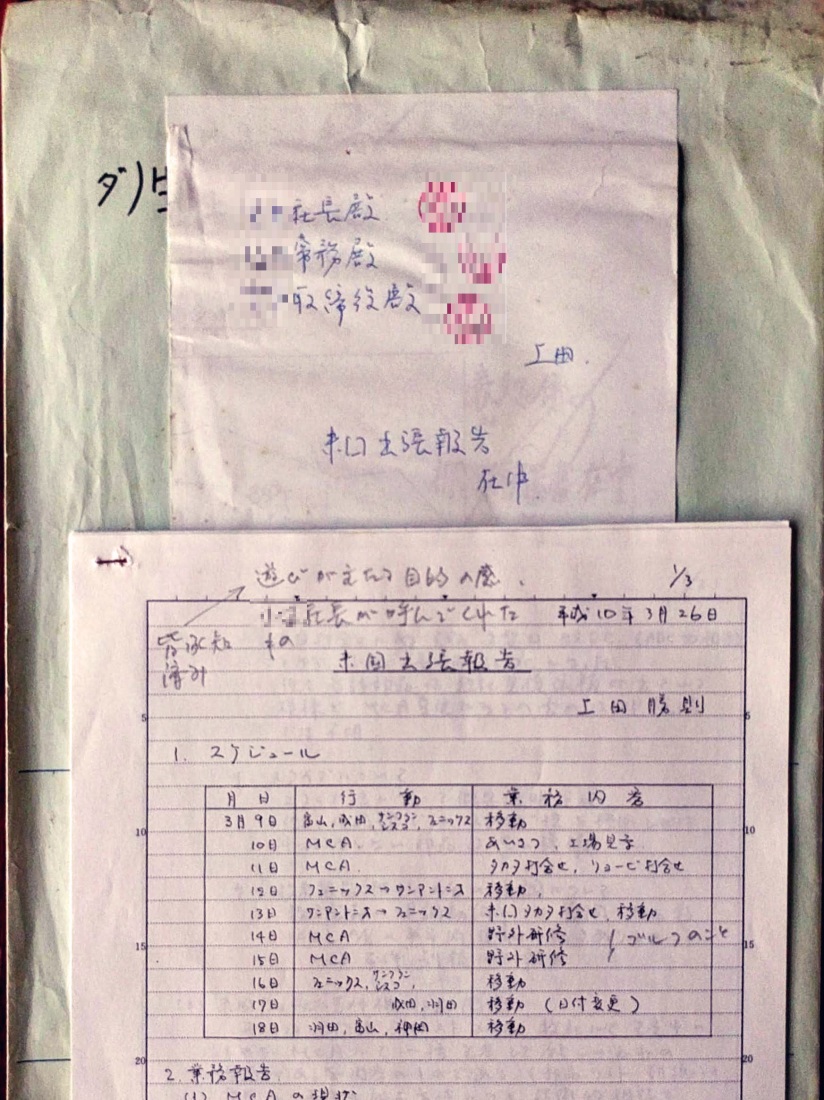 社長殿
常務殿
取締役殿
上田.
米国出張報告
在中
遊びが主たる目的の感.
1/3
社長が呼んでくれた
もの
平成10年3月26日
皆承知
済み
米国出張報告
上田 勝則
5
1. スケジュール
月 日 行 動 業務内容
3月9日 富山, 成田, サンフランシスコ, フェニックス 移動
10
10日 MCA あいさつ、工場見学
11日 MCA. タカタ打合せ, リョービ打合せ
12日 フェニックス→サンアントニオ 移動.
13日 サンアントニオ→フェニックス 米国タカタ打合せ, 移動
14日 MCA 野外研修
ゴルフのこと
15
15日 MCA 野外研修
16日 フェニックス, サンフランシスコ, 移動
17日 成田, 羽田 移動 (日付変更)
18日 羽田, 富山, 神岡 移動
20
2. 業務報告
(1) MCAの現状